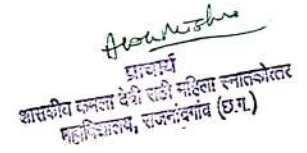 प्राचार्य
शासकीय कमला देवी राठी महिला स्नातकोत्तर
महाविद्यालय, राजनांदगांव (छ.ग.)